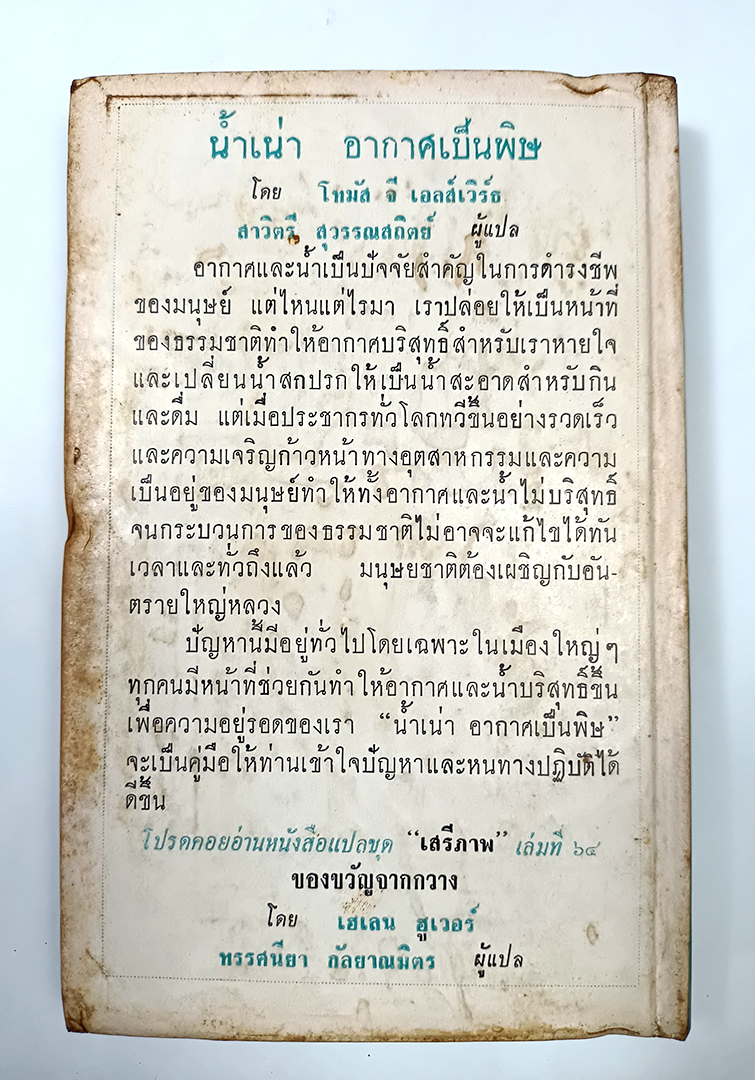 น้ำเน่า อากาศเป็นพิษ
โดย โทมัส จี เอลส์เวิร์ธ
สาวิตรี สุวรรณสถิตย์ ผู้แปล
อากาศและน้ำเป็นปัจจัยสำคัญในการดำรงชีพ
ของมนุษย์ แต่ไหนแต่ไรมา เราปล่อยให้เป็นหน้าที่
ของธรรมชาติทำให้อากาศบริสุทธิ์สำหรับเราหายใจ
และเปลี่ยนน้ำสกปรกให้เป็นน้ำสะอาดสำหรับกิน
และดื่ม แต่เมื่อประชากรทั่วโลกทวีขึ้นอย่างรวดเร็ว
และความเจริญก้าวหน้าทางอุตสาหกรรมและความ
เป็นอยู่ของมนุษย์ทำให้ทั้งอากาศและน้ำไม่บริสุทธิ์
จนกระบวนการของธรรมชาติไม่อาจจะแก้ไขได้ทัน
เวลาและทั่วถึงแล้ว มนุษยชาติต้องเผชิญกับอัน-
ตรายใหญ่หลวง
ปัญหานี้มีอยู่ทั่วไปโดยเฉพาะในเมืองใหญ่ๆ
ทุกคนมีหน้าที่ช่วยกันทำให้อากาศและน้ำบริสุทธิ์ขึ้น
เพื่อความอยู่รอดของเรา “น้ำเน่า อากาศเป็นพิษ”
จะเป็นคู่มือให้ท่านเข้าใจปัญหาและหนทางปฏิบัติได้
ดีขึ้น
โปรดคอยอ่านหนังสือแปลชุด “เสรีภาพ” เล่มที่ ๖๔
ของขวัญจากกวาง
โดย เฮเลน ฮูเวอร์
ทรรศนียา กัลยาณมิตร ผู้แปล